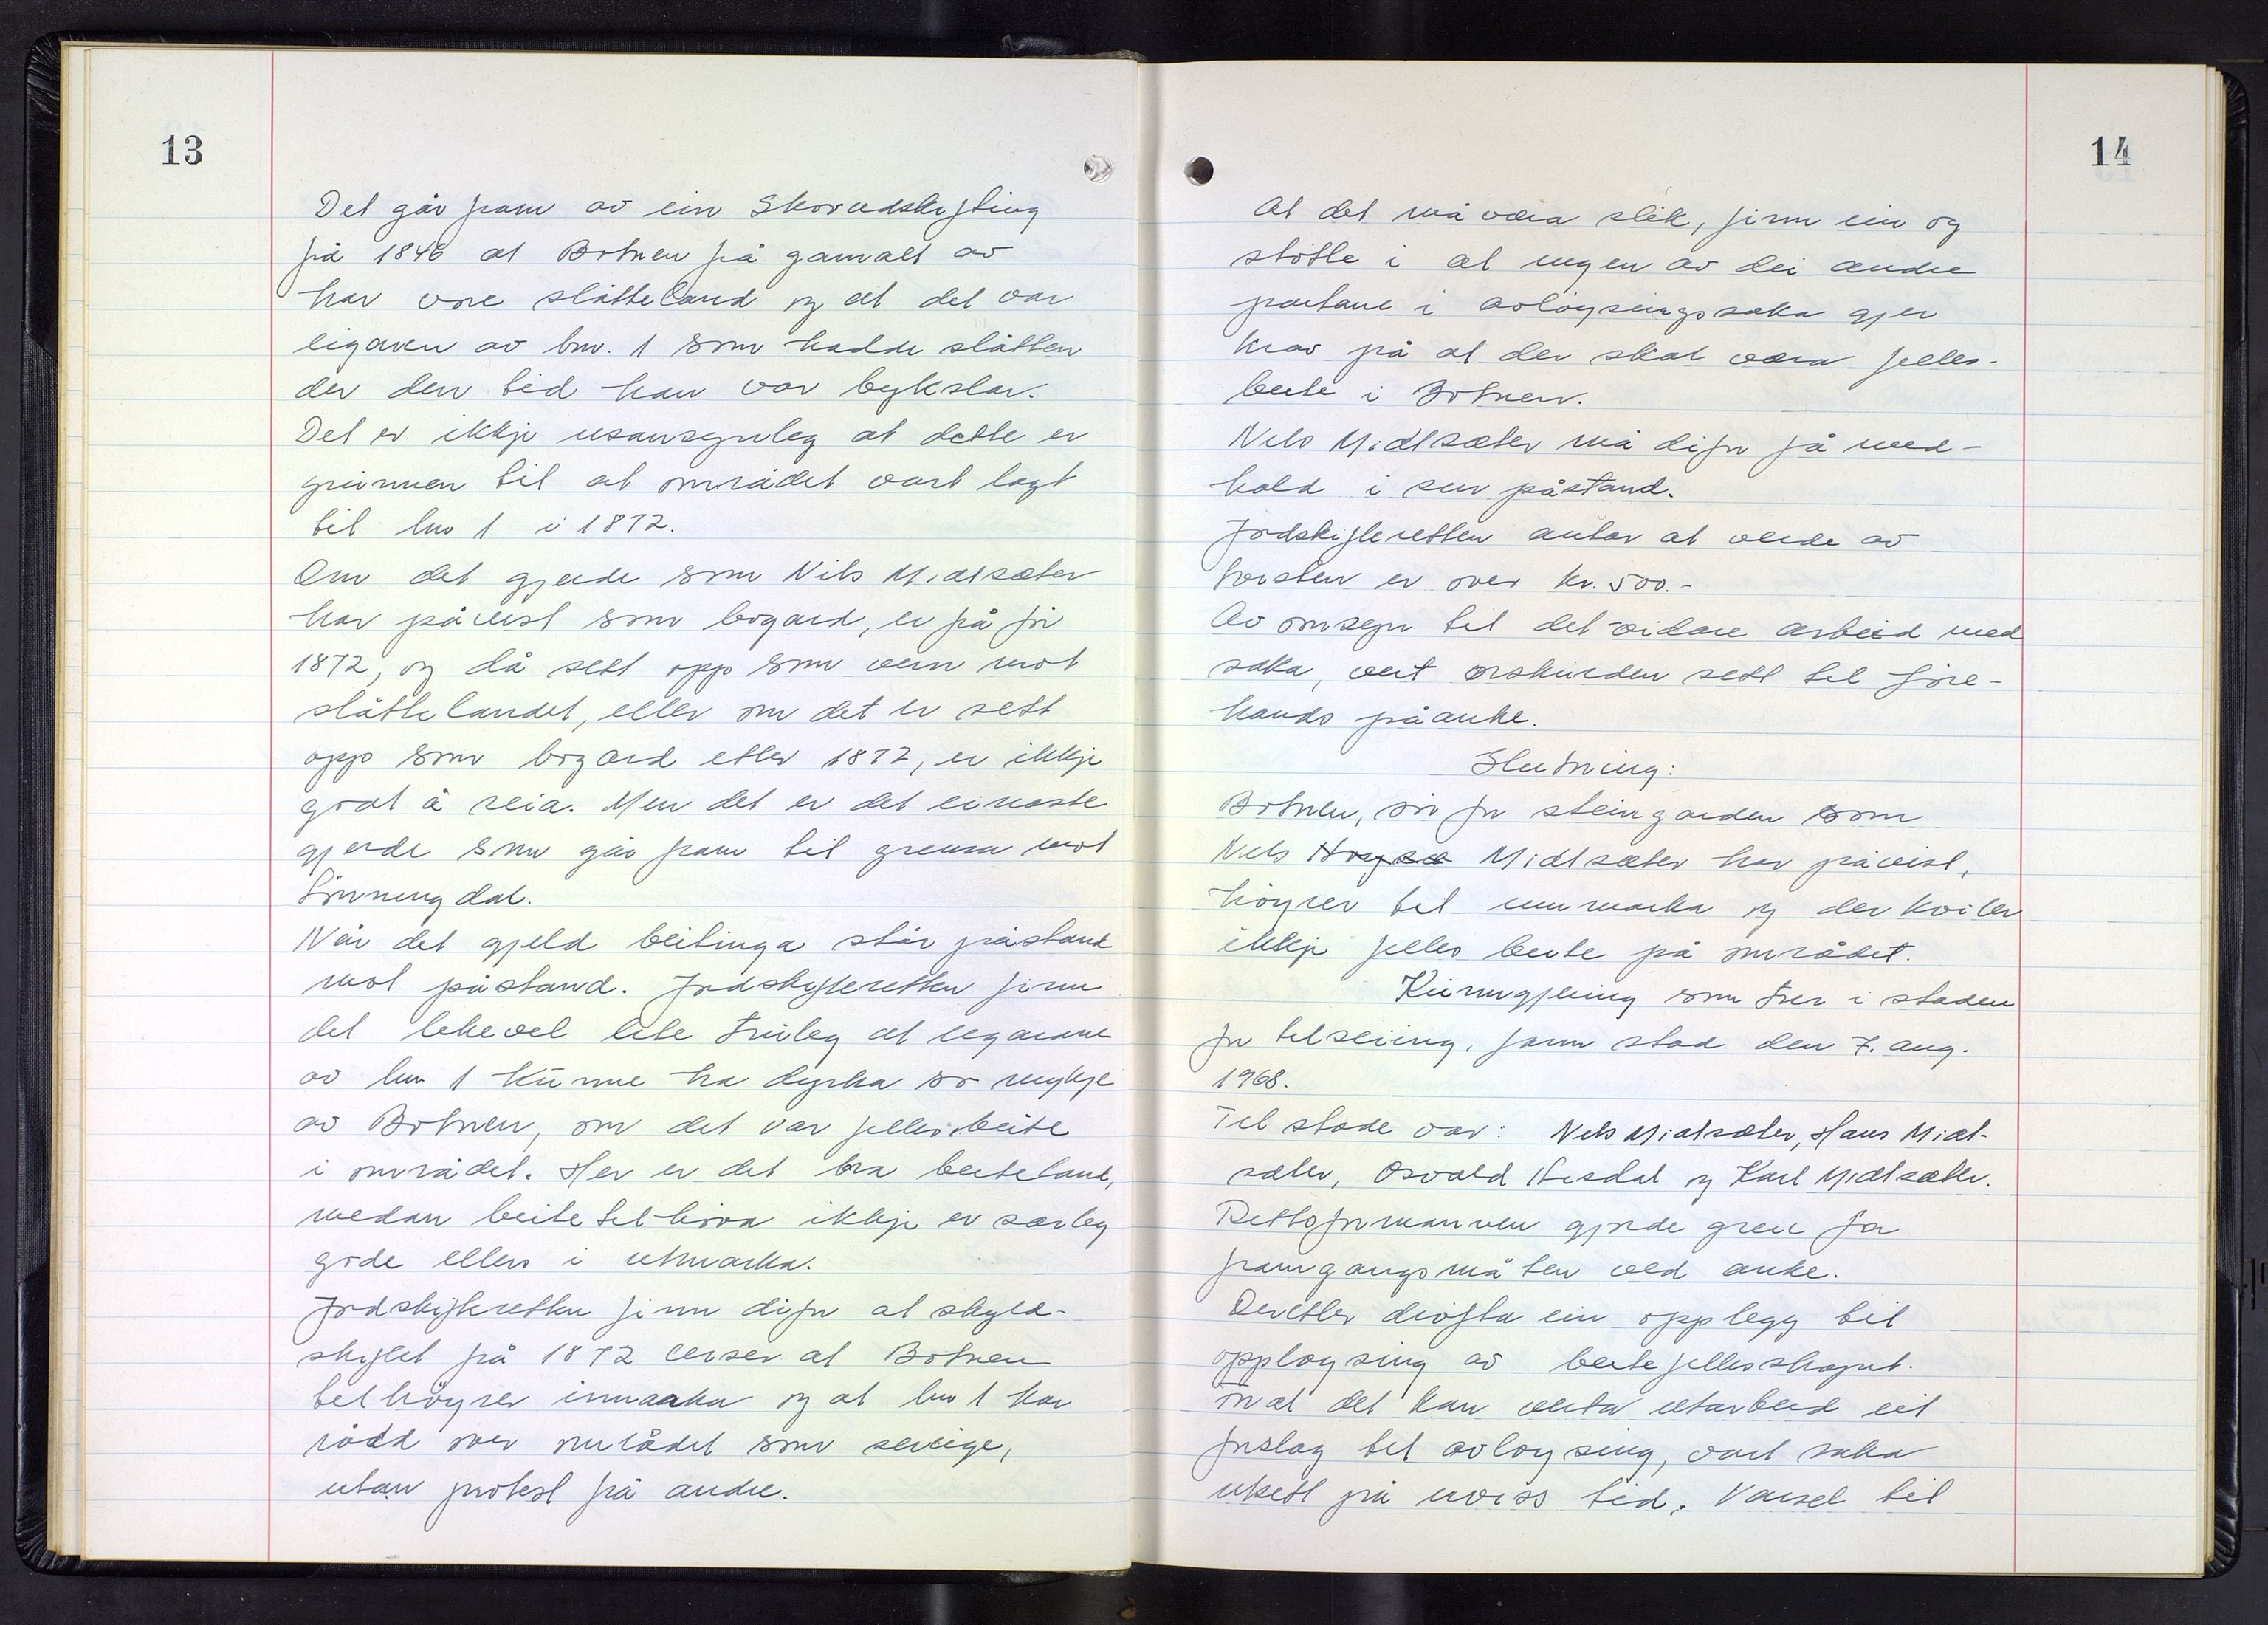 13
Det går fram av ein Skovudskifting
frå 1846 at Botnen frå gamalt av
har vore slåtteland og at det var
eigaren av bnr. 1 som hadde slåtten
der den tid han var bykslar.
Det er ikkje usansynleg at dette er
grunnen til at området vart lagt
til bnr 1 i 1872.
Om det gjerde som Nils Midtsæter
har påvist som bøgard, er frå før
1872, og då sett opp som vern mot
slåttelandet, eller om det er sett
opp som bøgard etter 1872, er ikkje
godt å seia. Men det er det einaste
gjerde som går fram til grensa mot
Tønningdal.
Når det gjeld beitinga står påstand
mot påstand. Jordskifteretten finn
det likevel lite truleg at eigarane
av bnr 1 kunne ha dyrka so mykje
av Botnen, om det var fellesbeite
i området. Her er det bra beiteland,
medan beitetilhøva ikkje er særleg
gode ellers i utmarka.
Jordskifteretten finn difor at skyld-
skiftet frå 1872 viser at Botnen
tilhøyrer innmarka og at bnr 1 har
rådd over området som sereige,
utan protest frå andre.
14
At det må væra slik, finn ein og
støtte i at ingen av dei andre
partane i avløysingssaka gjer
krav på at der skal væra felles-
beite i Botnen.
Nils Midtsæter må difor få med-
hald i sin påstand.
Jordskifteretten antar at verde av
tvisten er over kr. 500.-
Av omsyn til det vidare arbeid med
saka, vert orskurden sett til føre-
hands påanke.
Slutning:
Botnen, sør for steingarden som
Nils Midtsæter har påvist,
høyrer til innmarka og der kviler
ikkje felles beite på området.
Kunngjering som trer i staden
for tilseiing, fann stad den 7. aug.
1968.
Til stade var: Nils Midtsæter, Hans Midt-
sæter, Osvald Hisdal og Karl Midtsæter.
Rettsformannen gjorde greie for
framgangsmåten ved anke.
Deretter drøfta ein opplegg til
oppløysing av beitefellesskapet.
For at det kan verta utarbeid eit
forslag til avløysing, vart saka
utsett på uviss tid. Varsel til